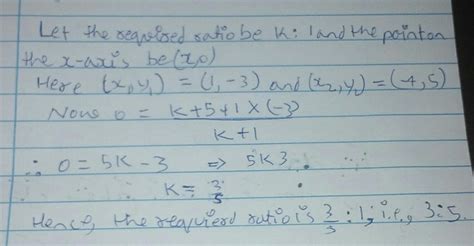 Let the required ratio be K:1 and the point on
the x-axis be (x,0)
Here (x,y₁) = (1,-3) and (x₂,y₂) = (-4,5)
Now 0 = K+5+1×(-3)
K+1
∴ 0 = 5K-3 ⇒ 5K3
K = 3/5
Hence, the required ratio is 3/5 : 1; i.e., 3:5.